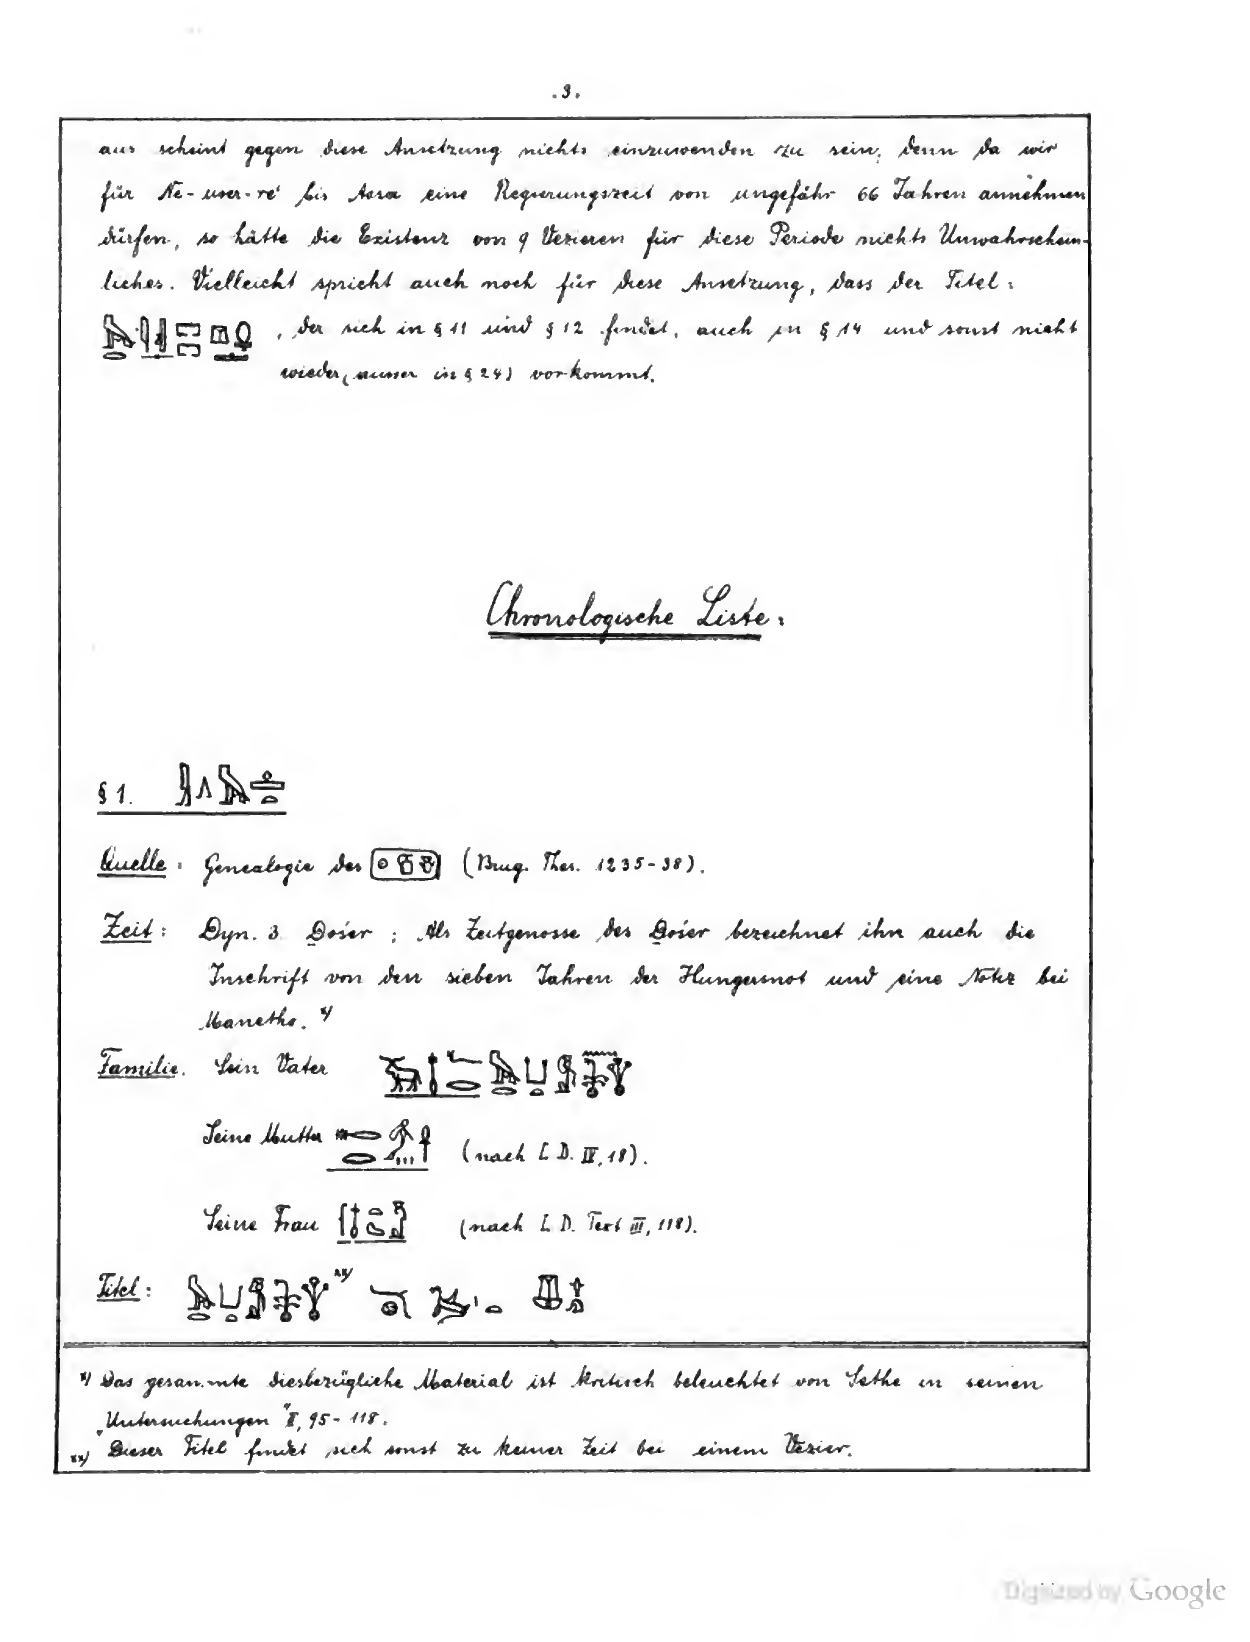 .3.
aus scheint gegen diese Ansetzung nichts einzuwenden zu sein; denn da wir
für Ne-user-re' bis Assa eine Regierungszeit von ungefähr 66 Jahren annehmen
dürfen, so hätte die Existenz von 9 Vezieren für diese Periode nichts Unwahrschein-
liches. Vielleicht spricht auch noch für diese Ansetzung, dass der Titel:
, der sich in § 11 und § 12 findet, auch in § 14 und sonst nicht
wieder (ausser in § 24) vorkommt.
Chronologische Liste:
§ 1.
Quelle: Genealogie des (Brug. Thes. 1235-38).
Zeit: Dyn. 3. Ḏośer; Als Zeitgenosse des Ḏośer bezeichnet ihn auch die
Inschrift von den sieben Jahren der Hungersnot und eine Notiz bei
Manetho. x)
Familie. Sein Vater
Seine Mutter (nach L. D. III, 18).
Seine Frau (nach L. D. Text III, 118).
Titel: xx)
x) Das gesammte diesbezügliche Material ist kritisch beleuchtet von Sethe in seinen
„Untersuchungen" II, 95-118.
xx) Dieser Titel findet sich sonst zu keiner Zeit bei einem Vezier.
Digitized by Google